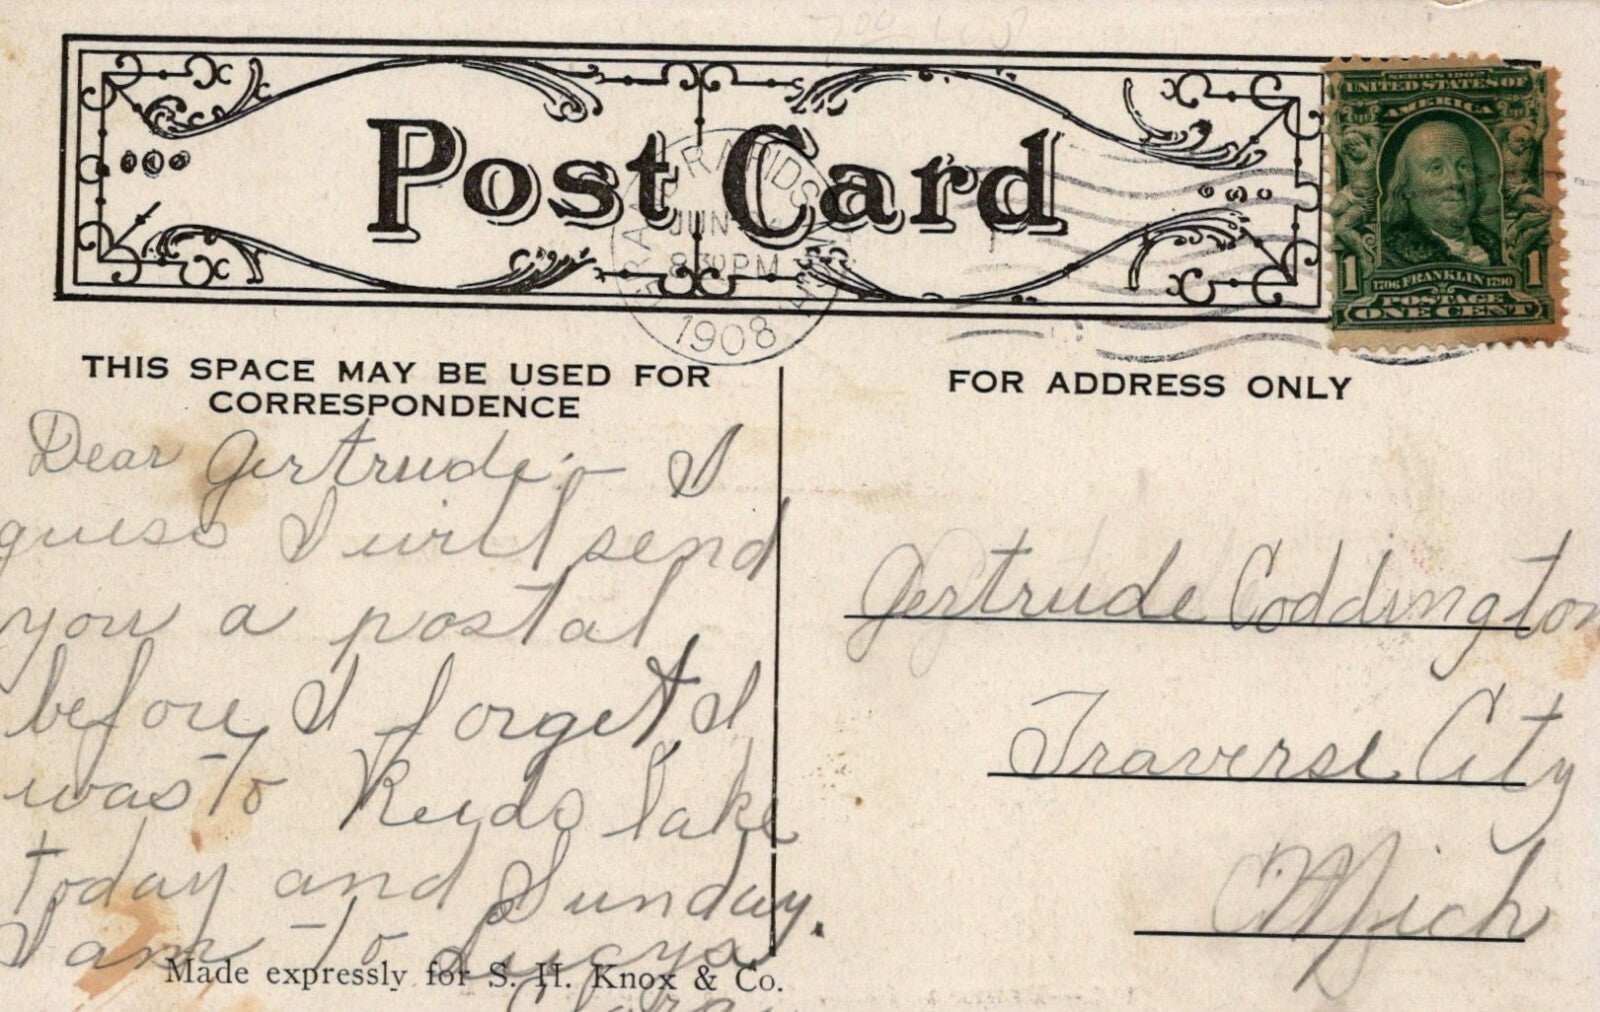 Post Card
GRAND RAPIDS, MICH.
JUN
8 30 PM
1908
SERIES 1902
UNITED STATES OF
AMERICA
1 1706 FRANKLIN 1790 1
POSTAGE
ONE CENT
THIS SPACE MAY BE USED FOR
CORRESPONDENCE
Dear Gertrude:- I
guess I will send
you a postal
before I forget I
was to Reeds lake
today and Sunday.
I am to Lucys
Clara
Made expressly for S. H. Knox & Co.
FOR ADDRESS ONLY
Gertrude Coddington
Traverse City
Mich